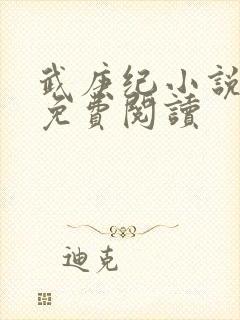 武庚纪小說
免費閱讀
迪克